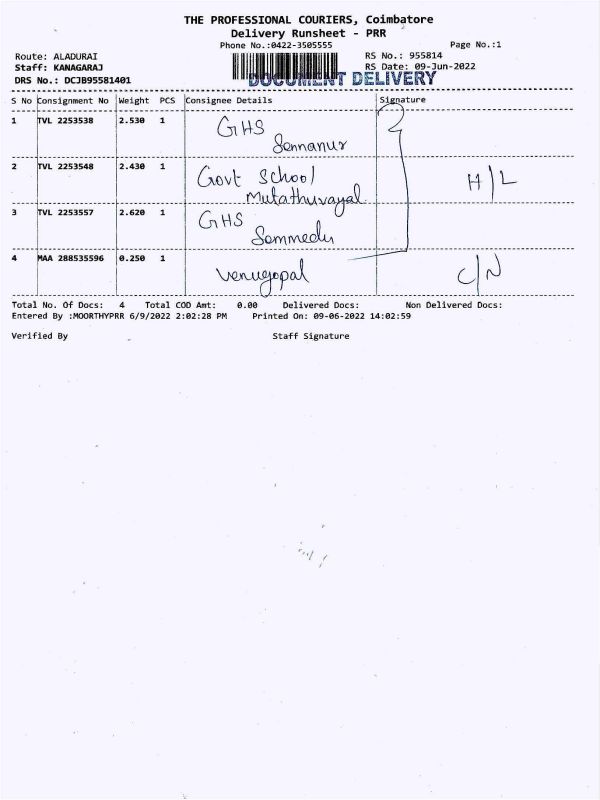 THE PROFESSIONAL COURIERS, Coimbatore
Delivery Runsheet - PRR
Phone No.:0422-3505555 Page No.:1
Route: ALADURAI RS No.: 955814
Staff: KANAGARAJ RS Date: 09-Jun-2022
DRS No.: DCJB95581401 DOCUMENT DELIVERY
S No Consignment No Weight PCS Consignee Details Signature
1 TVL 2253538 2.530 1 GHS
Sennanur
2 TVL 2253548 2.430 1 Govt School H/L
Mutathuvayal
3 TVL 2253557 2.620 1 GHS
Semmedu
4 MAA 288535596 0.250 1 Venugopal C/N
Total No. Of Docs: 4 Total COD Amt: 0.00 Delivered Docs: Non Delivered Docs:
Entered By :MOORTHYPRR 6/9/2022 2:02:28 PM Printed On: 09-06-2022 14:02:59
Verified By Staff Signature